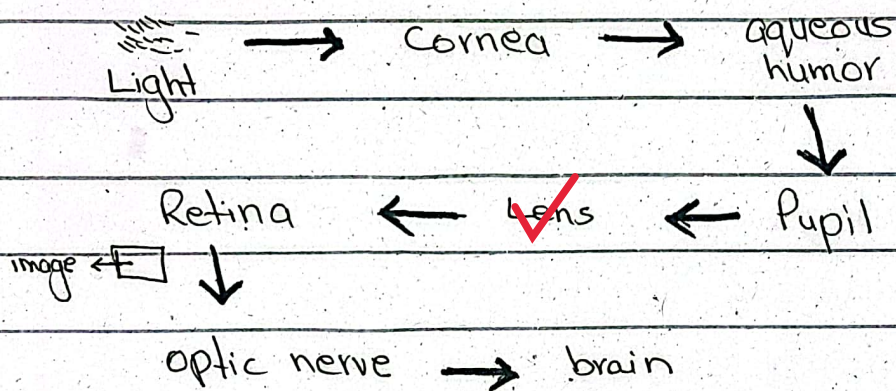 Light → Cornea → aqueous
humor
Retina ← Lens ← Pupil
image
optic nerve → brain